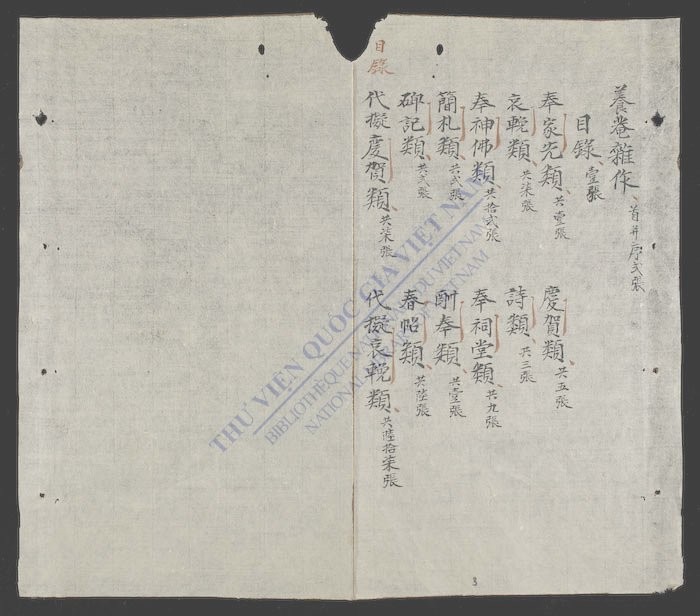 養菴雜作、首并序弍張
目錄、壹張
奉家先類、共壹張
慶賀類、共五張
哀輓類、共柒張
詩類、共三張
奉神佛類、共拾弍張
奉祠堂類、共九張
簡札類、共弍張
酧奉類、共壹張
碑記類、共弍張
春帖類、共陸張
代擬慶賀類、共柒張
代擬哀輓類、共陸拾柒張
目錄
THƯ VIỆN QUỐC GIA VIỆT NAM
BIBLIOTHÈQUE NATIONALE DU VIETNAM
NATIONAL LIBRARY OF VIETNAM
3